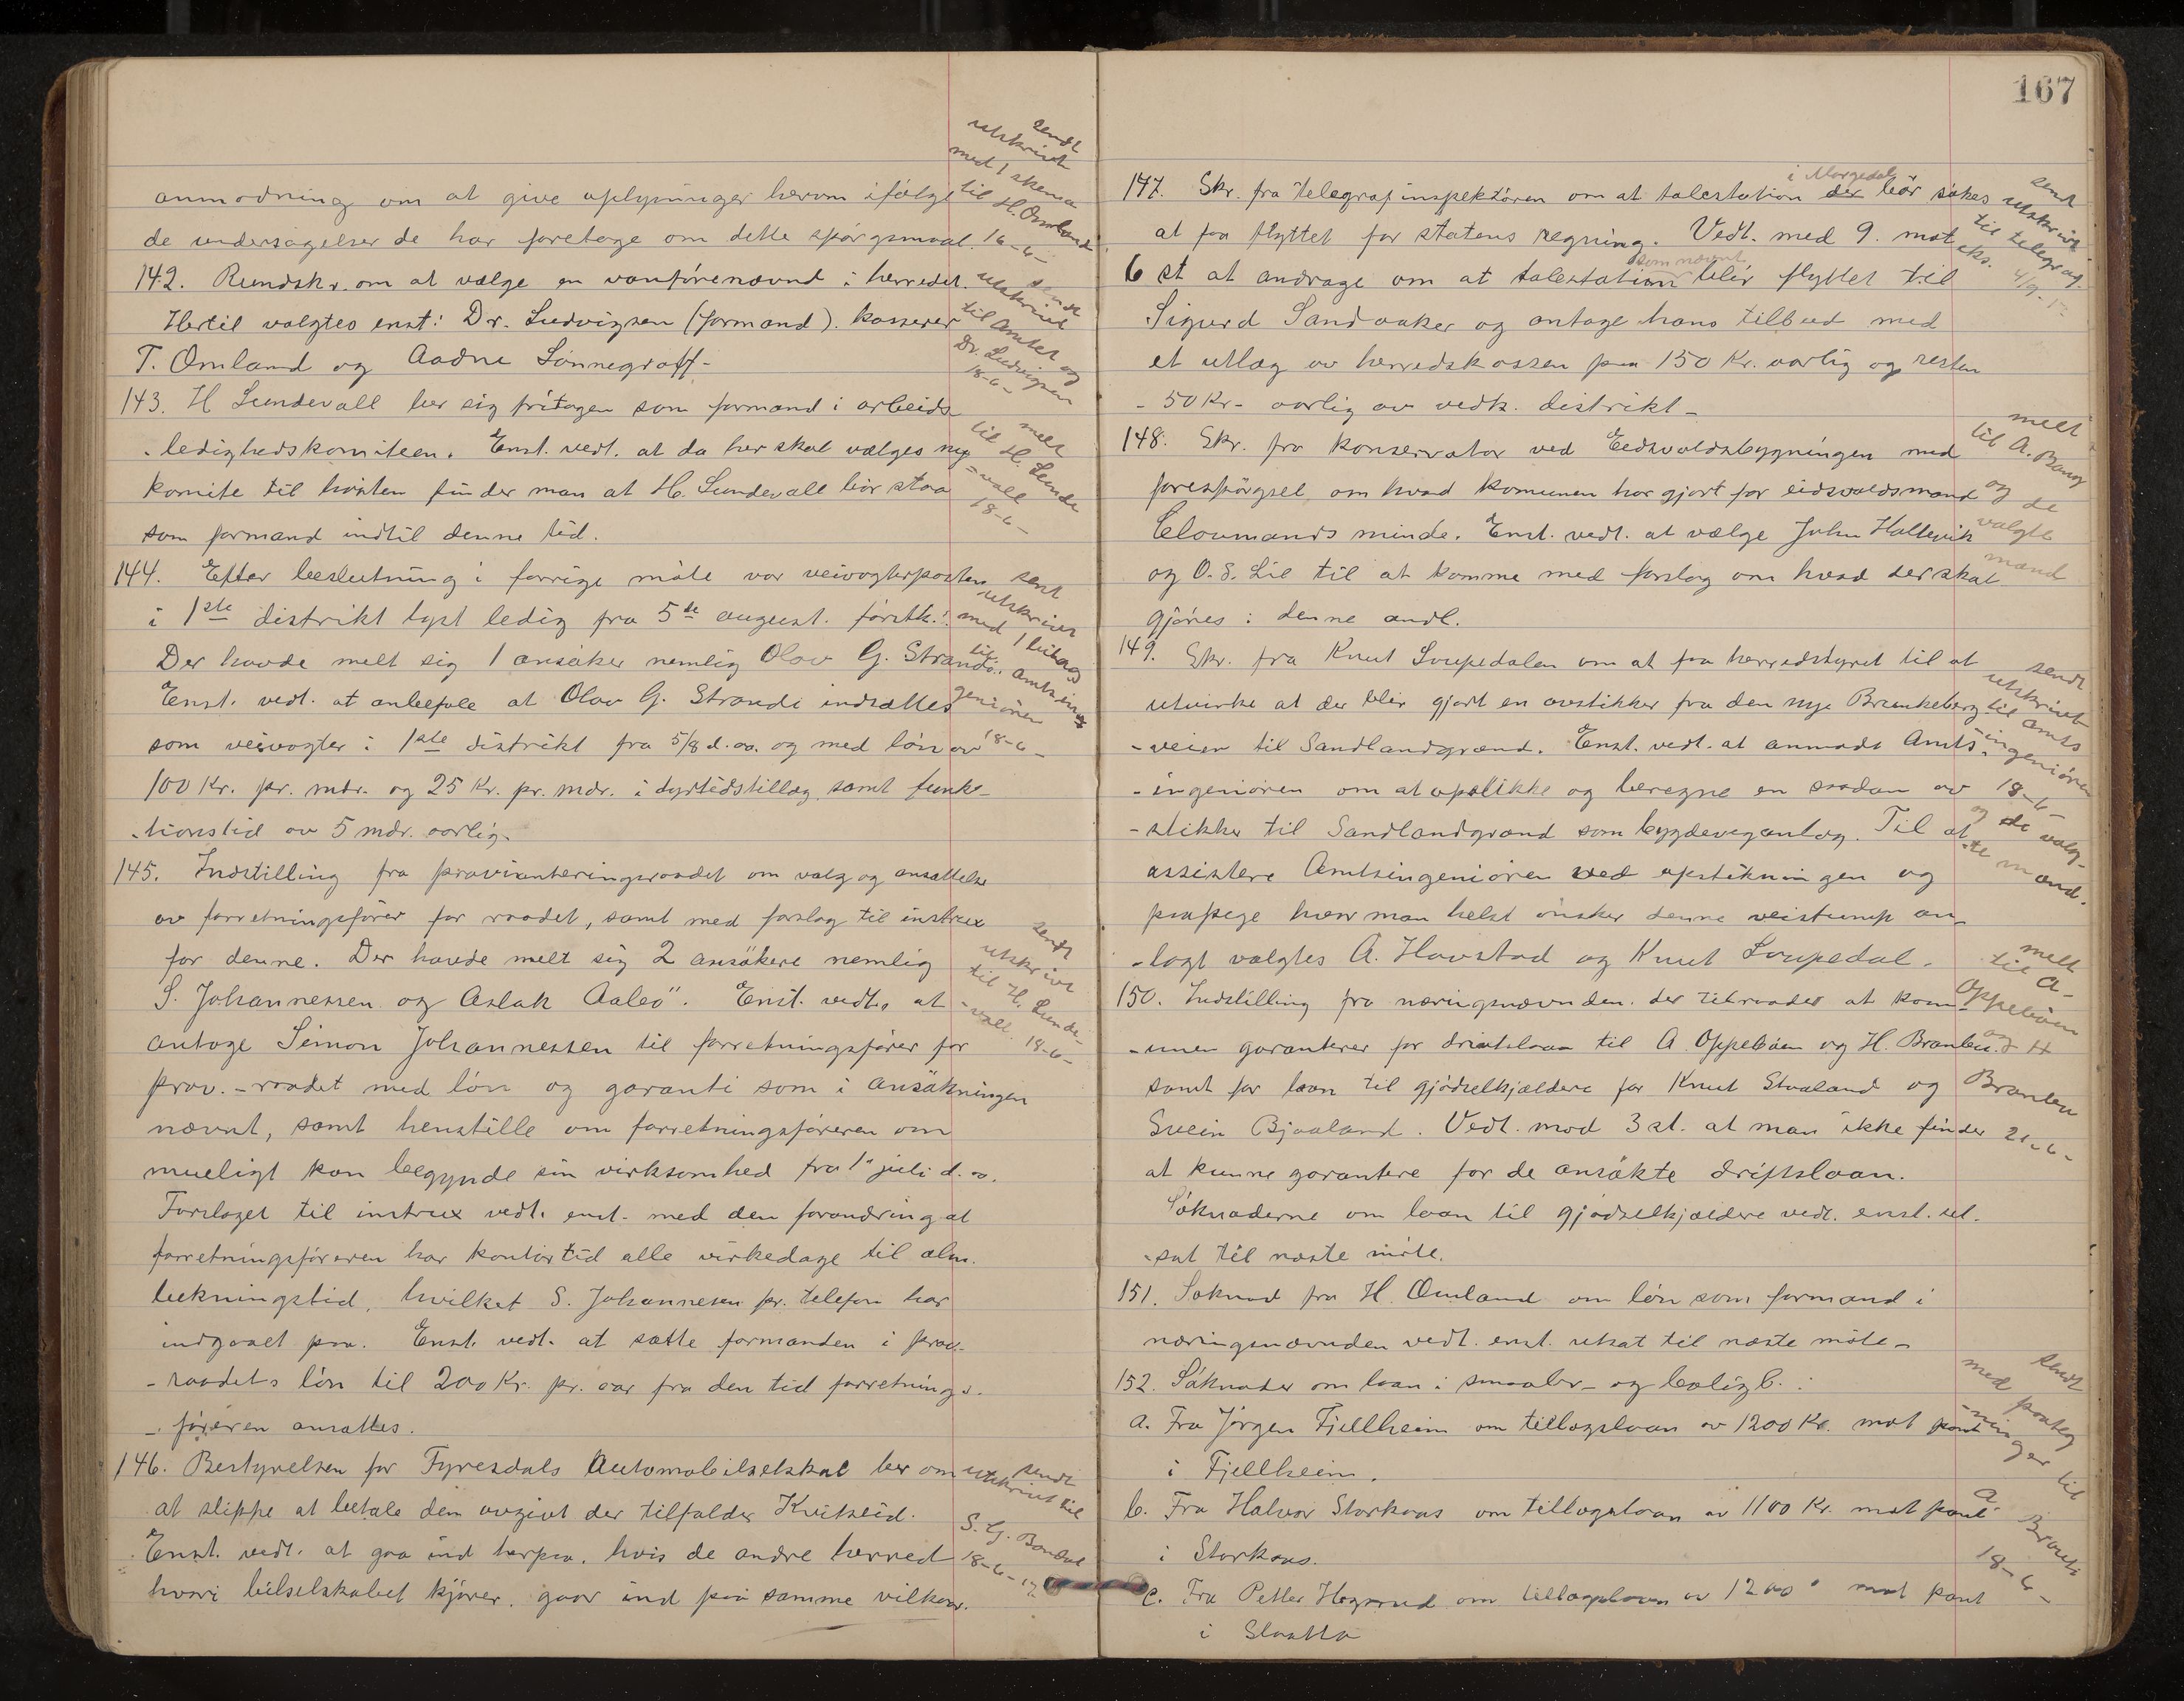 anmodning om at give oplysninger herom ifølge
de undersøgelser de har foretage om dette spörgsmaal.
sendt
utskrivt
med 1 skema
til H. Omland
16-6-
142. Rundskr. om at vælge en vanförenævnd i herredet.
Hertil valgtes enst: Dr. Ludvigsen (formand). kasserer
T. Omland og Aadne Lönnegraff-
sendt
utskrivt
til Amtet og
Dr. Ludvigsen
18-6-
143. H Lundevall ber sig fritagen som formand i arbeids
-ledighedskomiteen. Enst. vedt. at da her skal vælges ny
komite til hösten finder man at H. Lundevall bör staa
som formand indtil denne tid.
melt
til H. Lunde
-vall
18-6-
144. Efter beslutning i forrige möte var veivogterposten
i 1ste distrikt lyst ledig fra 5te august. förstk.
Der havde melt sig 1 ansöker nemlig Olav G. Strandi.
Enst. vedt. at anbefale at Olav G. Strandi indsattes
som veivogter i 1ste distrikt fra 5/8 d. aa. og med lön av
100 Kr. pr. mdr. og 25 Kr. pr. mdr. i dyrtidstillæg samt funk-
-tionstid av 5 mdr. aarlig.
sent
utskrivt
med 1 bilag
til amtsin-
geniören
18-6-
145. Indstilling fra provianteringsraadet om valg og ansættelse
av forretningsförer for raadet, samt med forslag til instrux
for denne. Der havde melt sig 2 ansökere nemlig
S. Johannessen og Aslak Aabø. Enst. vedt. at
antage Simon Johannessen til forretningsförer for
prov.-raadet med lön og garanti som i ansökningen
nævnt, samt henstille om forretningsföreren om
mueligt kan begynde sin virksomhed fra 1" juli d. a.
Forslaget til instrux vedt. enst. med den forandring at
forretningsföreren har kontortid alle virkedage til alm.
lukningstid, hvilket S. Johannesen pr. telefon har
indgaaet paa. Enst. vedt. at sætte formanden i prov-
-raadets lön til 200 Kr. pr. aar fra den tid forretnings-
-föreren ansattes.
sendt
utskrivt
til H. Lunde-
-vall. 18-6-
146. Bestyrelsen for Fyresdals Automobilselskab ber om
at slippe at betale den avgivt der tilfalder Kviteseid.
Enst. vedt. at gaa ind herpaa. hvis de andre herred
hvori bilselskabet kjörer. gaar ind paa samme vilkaar.
sendt
utskrivt til
S. G. Bondal
18-6-17.
167
147. Skr. fra Telegrafinspektören om at talestation der bör søkes
i Morgedal
at faa flyttet for statens regning. Vedt. med 9. mot
6 st at andrage om at talestation blir flyttet til
som nævnt
Sigurd Sandaaker og antage hans tilbud med
et utlæg av herredskassen paa 150 Kr. aarlig og resten
- 50 Kr- aarlig av vedk. distrikt-
sent
utskrivt
til telegraf
148. Skr. fra konservator ved Eidsvoldsbygningen med
forespörgsel om hvad komunen har gjort for eidsvoldsmand
Cloumands minde. Enst. vedt. at vælge John Hallevik
og O. S. Lid til at komme med forslag om hvad der skal
gjöres i denne andl.
melt
til A. Bang
og de
valgte
mænd
149. Skr. fra Knut Loupedalen om at faa herredstyret til at
utvirke at der blir gjort en avstikker fra den nye Brunkeberg
-veien til Sandlandgrænd. Enst. vedt. at anmode Amts-
-ingeniören om at opstikke og beregne en saadan av
-stikker til Sandlandgrænd som bygdeveganlæg. Til at
assistere Amtsingeniören ved opstikningen og
paapege hvor man helst önsker denne veistump an-
-lagt valgtes A. Havstad og Knut Loupedal.
sendt
utskrivt
til amts
-ingeniören
18-6-
og de valg-
-te mænd.
150. Indstilling fra næringsnævnden. der tilraader at kom-
-unen garanterer for driftslaan til A. Oppeböen og H. Branlen.
samt for laan til gjödselkjældere for Knut Straland og
Svein Bjaaland. Vedt. mod 3 st. at man ikke finder
at kunne garantere for de ansökte driftslaan.
Söknaderne om laan til gjödselkjældere vedt. enst. ut-
-sat til næste möte.
melt
til A-
Oppeböen
og H
Branlen
21-6-
151. Söknad fra H. Omland om lön som formand i
næringsnævnden vedt. enst. utsat til næste möte-
152. Söknader om laan i smaabr- og boligb. :
a. Fra Jörgen Fjellheim om tillægslaan av 1200 Kr. mot pant
i Fjellheim.
b. Fra Halvor Storkaas om tillægslaan av 1100 Kr. mot pant
i Storkaas.
c. Fra Petter Hegprud om tillægslaan av 1200" mot pant
i Slaatta
sendt
med paateg
-ninger til
A.
18-6-